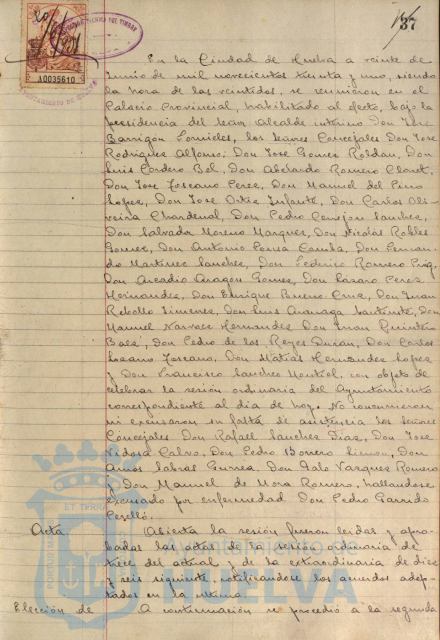 37
20/6/931
A0035610
En la Ciudad de Huelva a veinte de
Junio de mil novecientos treinta y uno, siendo
la hora de las veintidos, se reunieron en el
Palacio Provincial, habilitado al efecto, bajo la
presidencia del Señor Alcalde interino Don José
Barrigón Fornieles, los Señores Concejales Don José
Rodriguez Alfonso, Don José Gomez Roldan, Don
Luis Cordero Bel, Don Abelardo Romero Claret,
Don José Toscano Perez, Don Manuel del Pino
Lopez, Don José Ortiz Infante, Don Carlos Oli-
veira Chardenal, Don Pedro Cerrejon Sanchez,
Don Salvador Moreno Marquez, Don Nicolás Robles
Gomez, Don Antonio Ponce Don Fernan-
do Martinez Sanchez, Don Federico Romero
Don Arcadio Aragon Gomez, Don Lázaro Perez
Hernandez, Don Enrique Bueno Cruz, Don Juan
Rebollo Jimenez, Don Luis Don
Manuel Narvaez Hernandez Don Juan Quintero
Baez, Don Pedro de los Reyes Duran, Don Carlos
Lozano Toscano, Don Matías Hernandez Lopez
y Don Francisco Sanchez con objeto de
celebrar la sesión ordinaria del Ayuntamiento
correspondiente al día de hoy. No concurrieron
ni excusaron su falta de asistencia los Señores
Concejales Don Rafael Sanchez Diaz, Don José
Vidosa Calvo, Don Pedro Borrero Don
Amós Sabras Gurrea, Don Galo Vazquez Romero
y Don Manuel de Mora Romero, hallandose
excusado por enfermedad Don Pedro Garrido
Perelló.
Acta. Abierta la sesión fueron leidas y apro-
badas las actas de la sesión ordinaria de
trece del actual y de la extraordinaria de diez
y seis siguiente, ratificandose los acuerdos adop-
tados en la ultima.
Elección de A continuación se procedió a la segunda
Ayuntamiento de
HUELVA